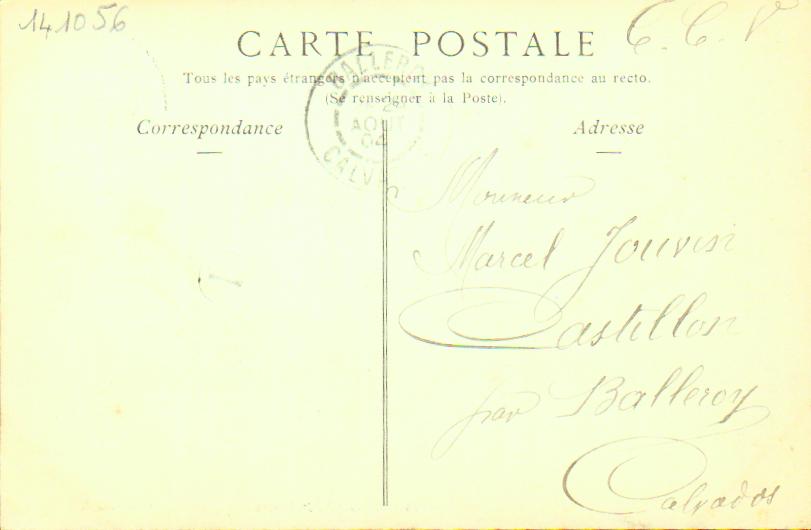 141056
CARTE POSTALE
C. C. P
Tous les pays étrangers n'acceptent pas la correspondance au recto.
(Se renseigner à la Poste).
Correspondance
Adresse
BALLEROY
AOUT
04
CALVADOS
Monsieur
Marcel Jouvin
Castillon
par Balleroy
Calvados